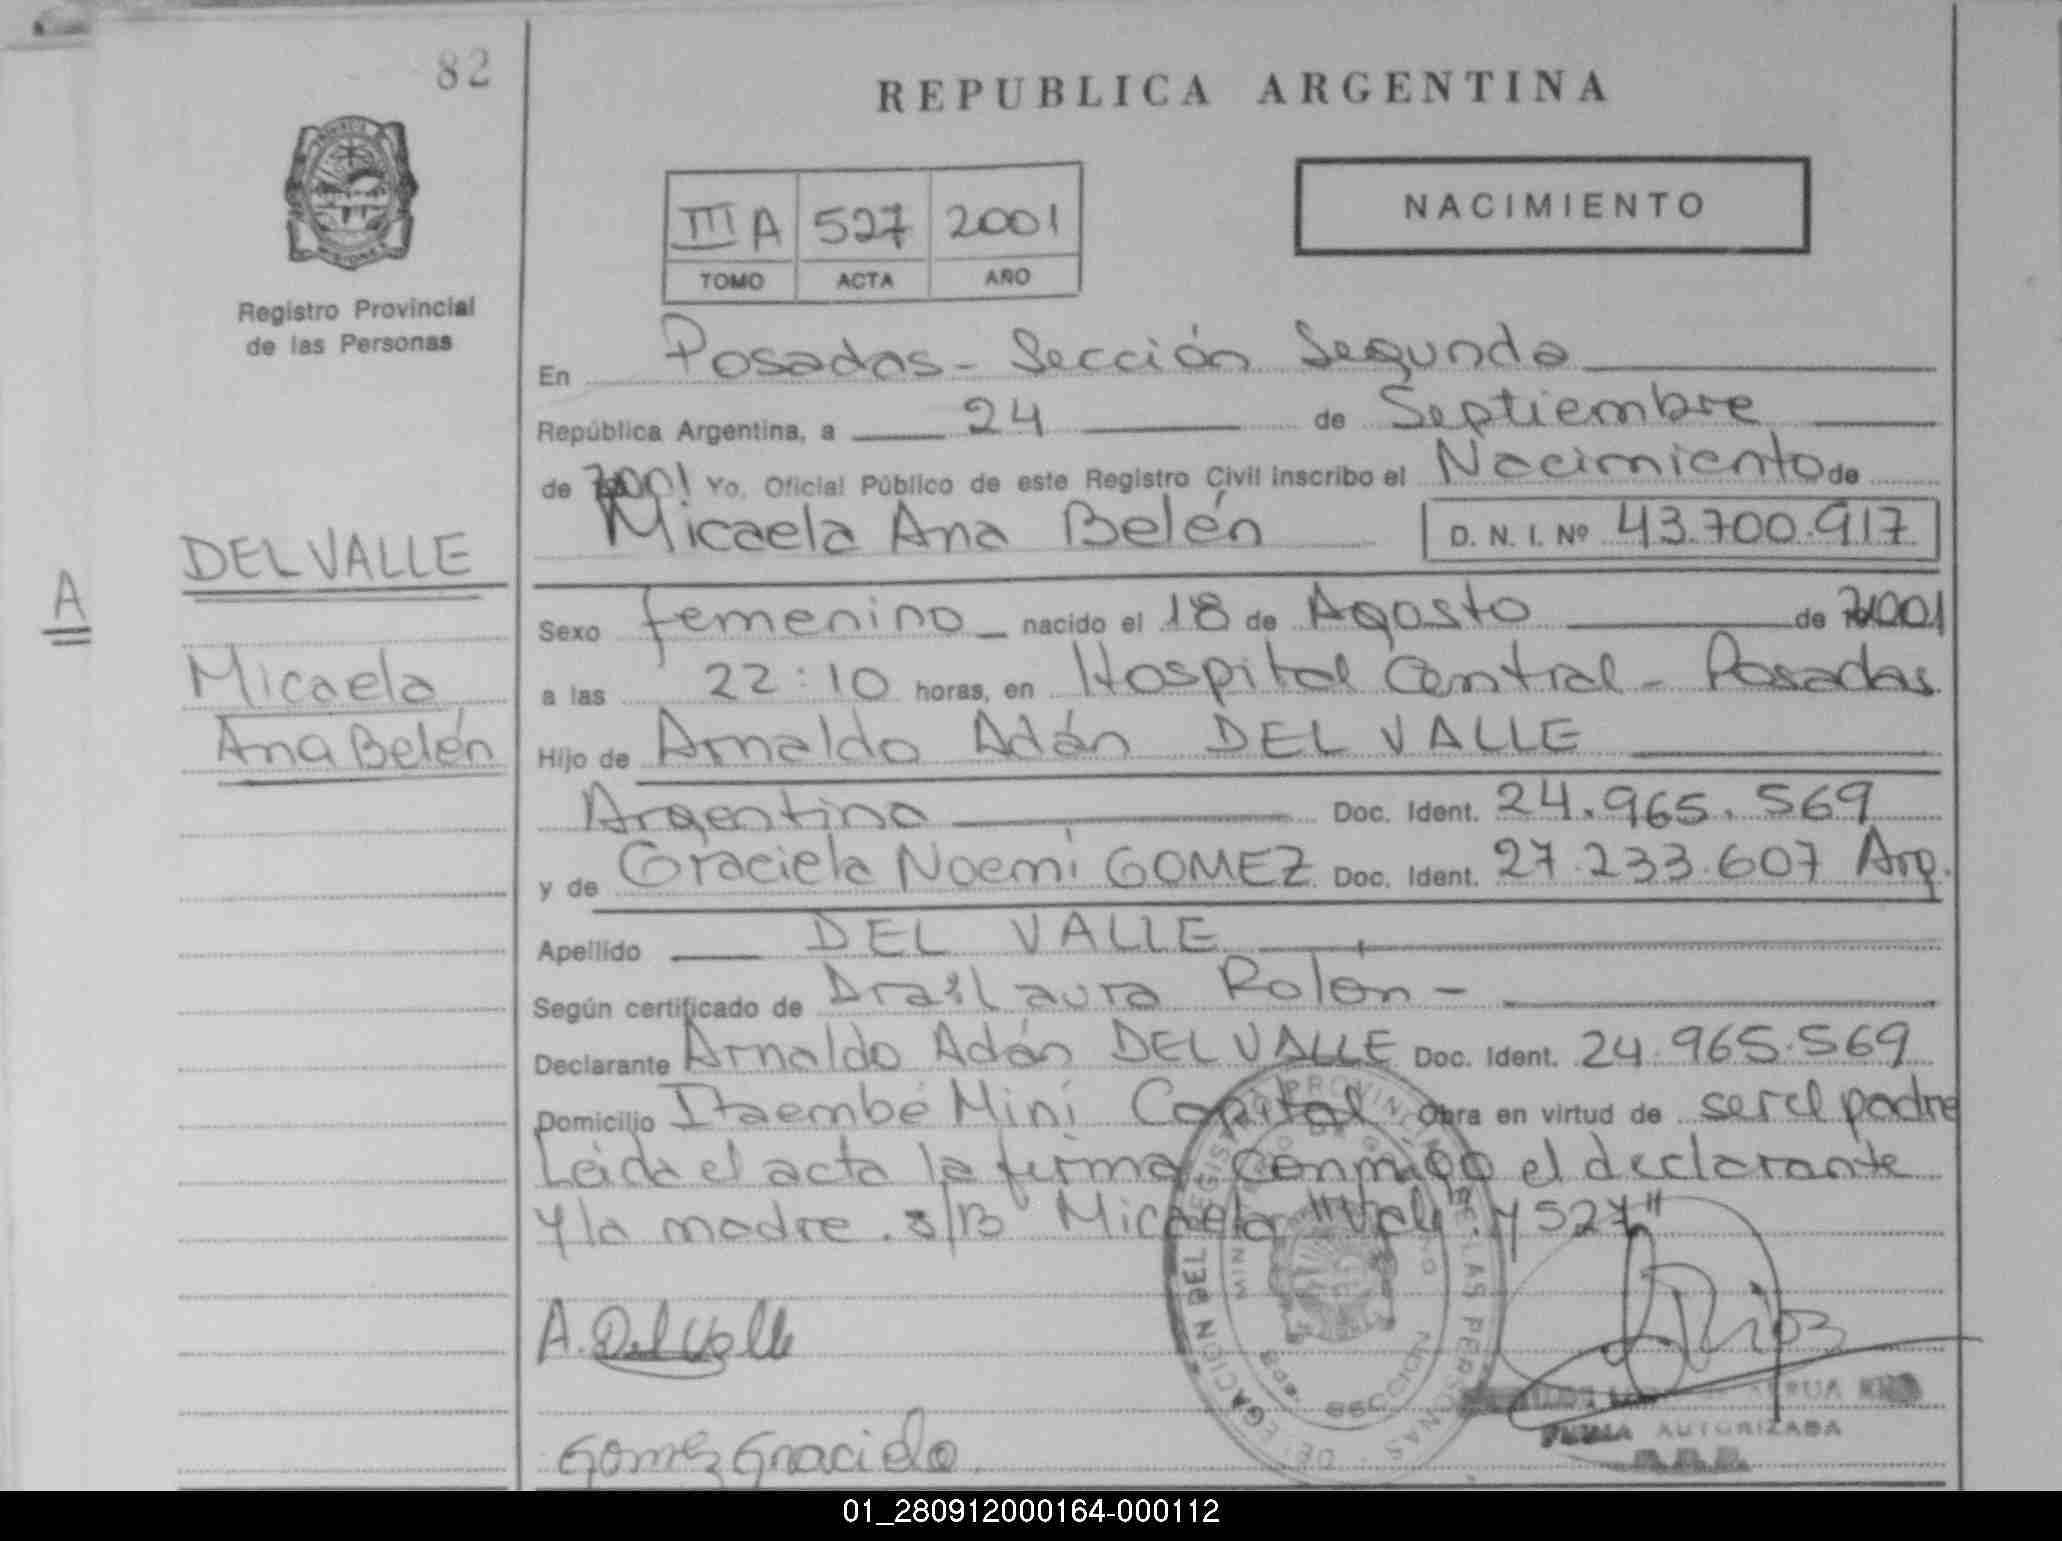 82
REPUBLICA ARGENTINA
III A 527 2001
TOMO ACTA AÑO
NACIMIENTO
Registro Provincial
de las Personas
En Posadas - Sección Segunda
República Argentina, a 24 de Septiembre
de 2001 Yo, Oficial Público de este Registro Civil inscribo el Nacimiento de
Micaela Ana Belén D. N. I. Nº 43.700.917
DEL VALLE
A
Micaela
Ana Belén
Sexo femenino nacido el 18 de Agosto de 2001
a las 22:10 horas, en Hospital Central - Posadas
Hijo de Arnaldo Adán DEL VALLE
Argentina Doc. Ident. 24.965.569
y de Graciela Noemí GOMEZ Doc. Ident. 27.233.607 Arg.
Apellido DEL VALLE
Según certificado de Laura Rolon -
Declarante Arnaldo Adán DEL VALLE Doc. Ident. 24.965.569
Domicilio Itaembé Miní Capital Obra en virtud de ser el padre
Leida el acta la firma conmigo el declarante
y la madre. s/B Micaela "Vale" y 527"
A. Del Valle
Rios
Gomez Graciela
DELEGACION DEL REGISTRO PROVINCIAL DE LAS PERSONAS
SECCION
FIRMA AUTORIZADA
01_280912000164-000112